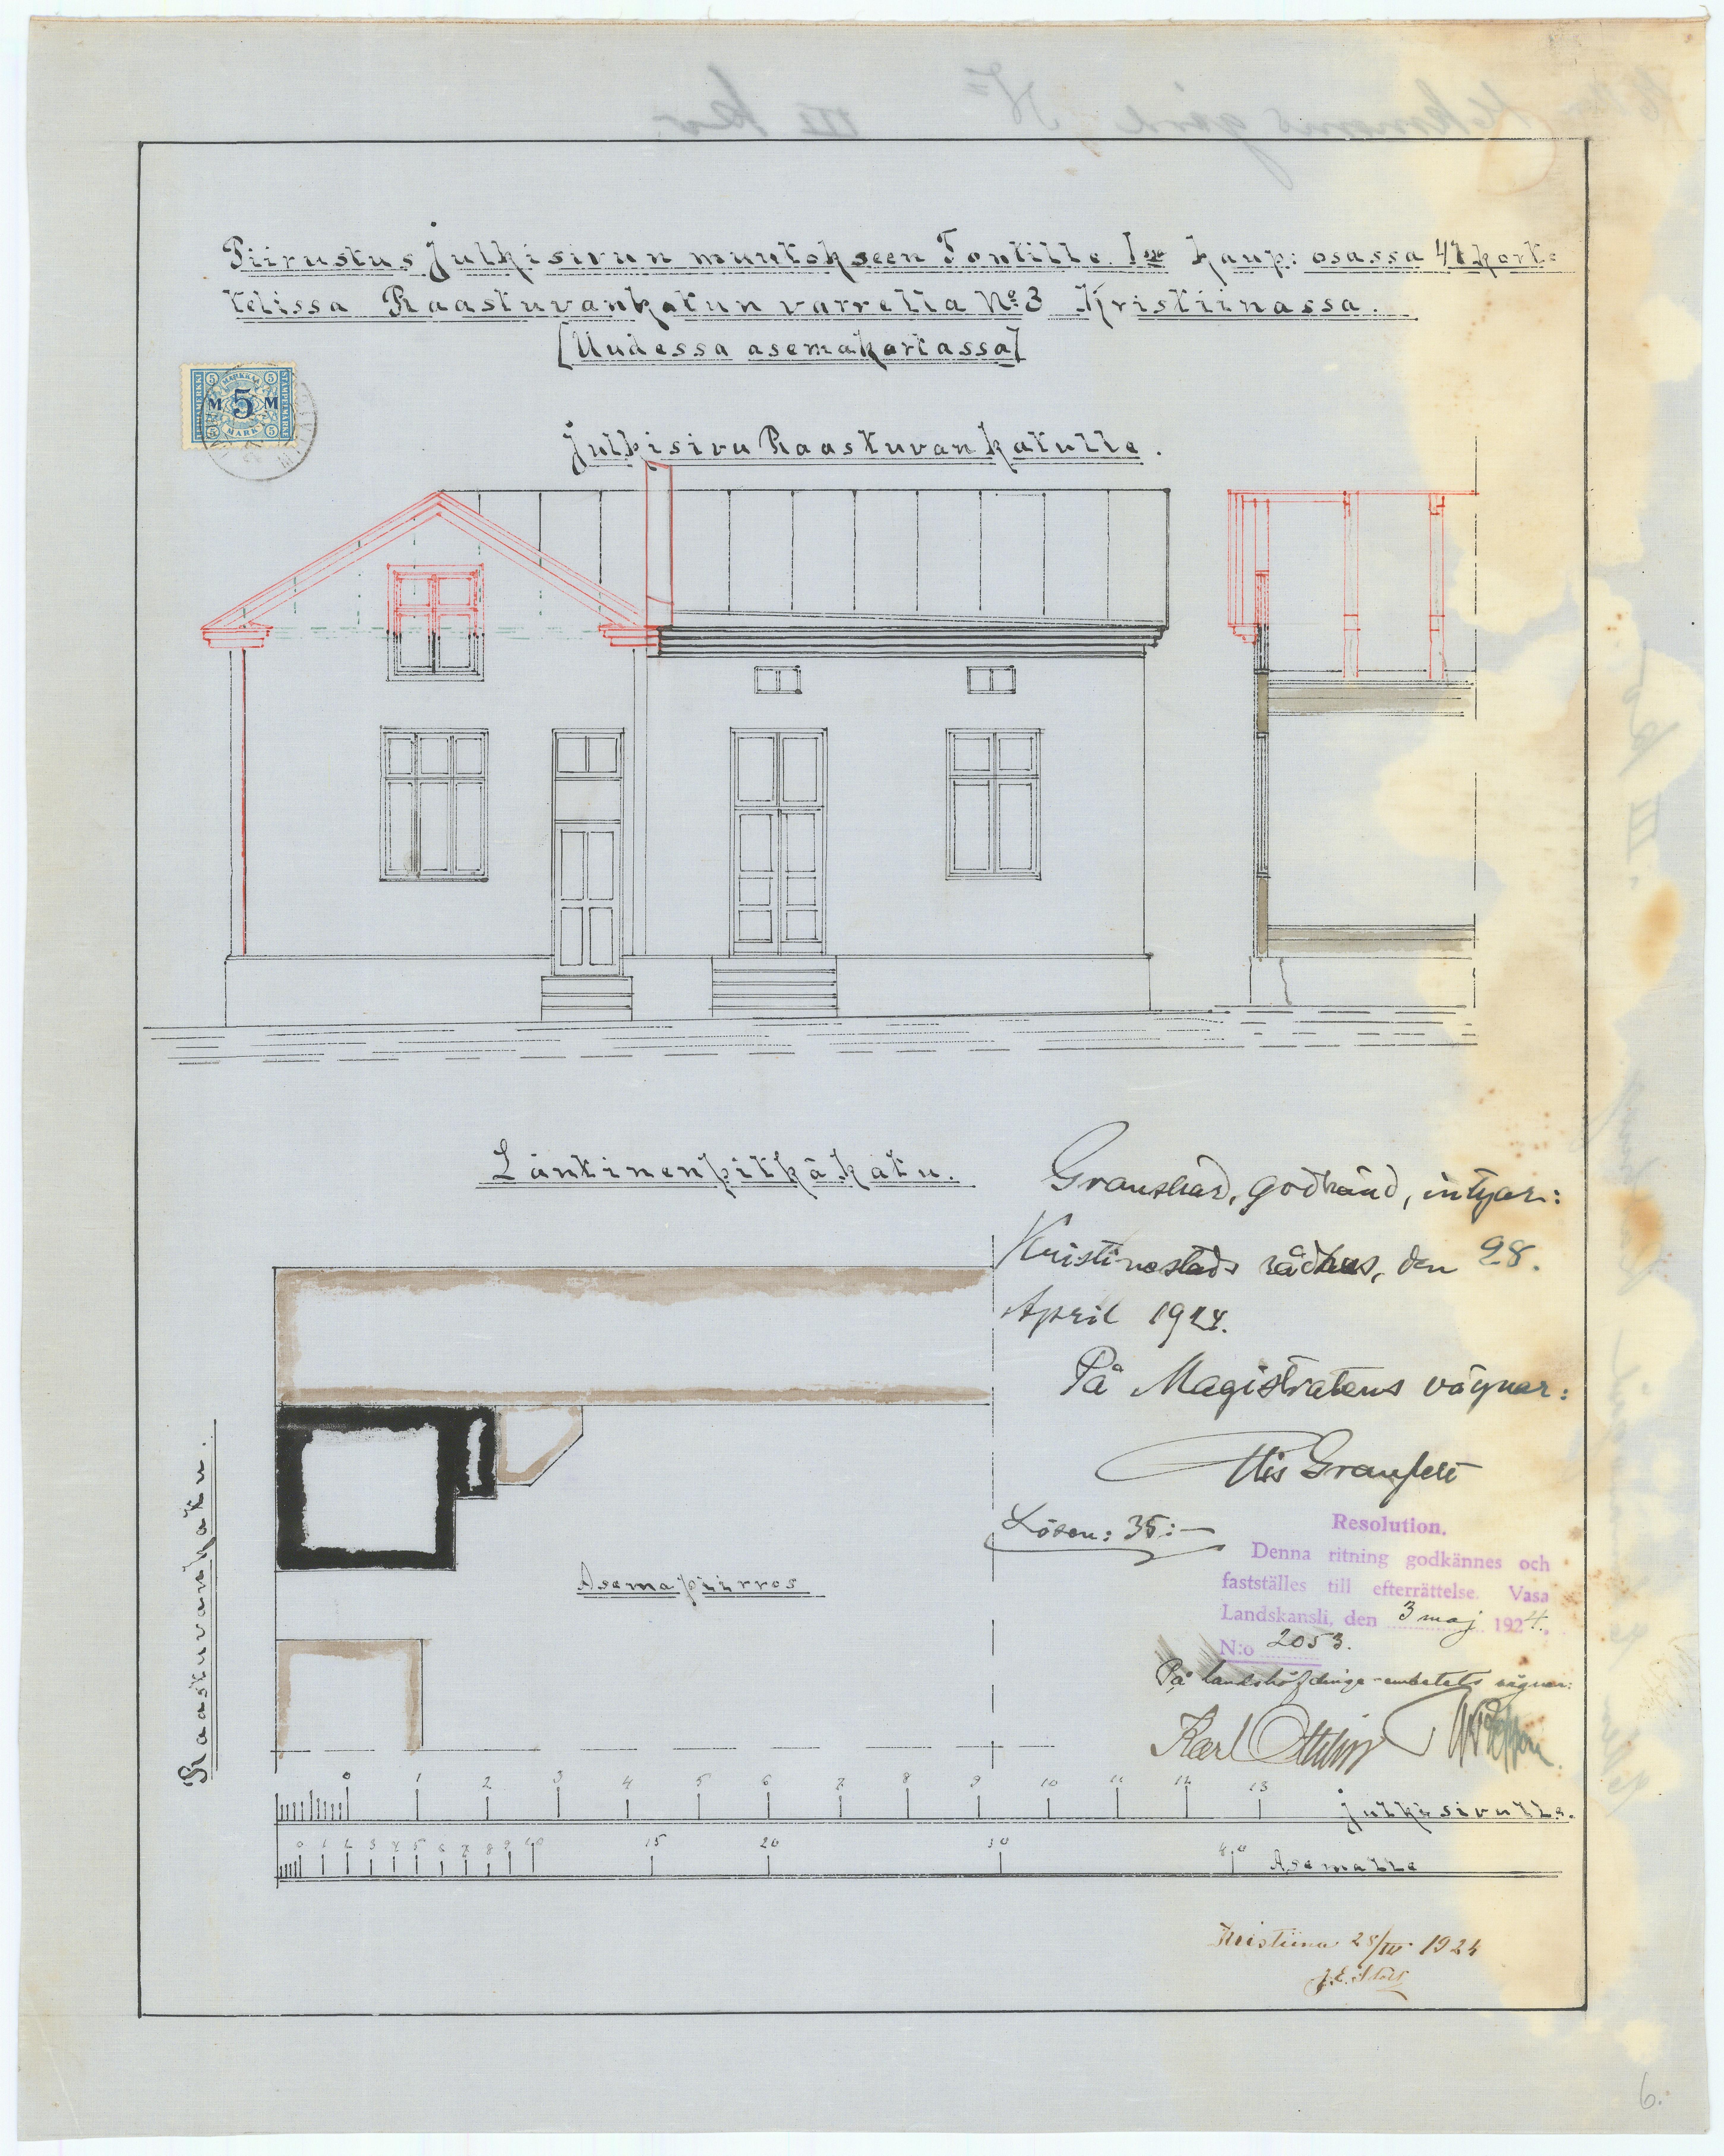 Piirustus Julkisivun muutokseen Tontille. I:ssä kaup: osassa 41 kort=
telissa Raastuvankatun varrella No 3 Kristiinassa.
[Uudessa asemakartassa]
LEIMAMERKKI
MARKKAA
STÄMPELMÄRKE
5 5
M 5 M
5 MARK 5
Julkisivu Raastuvankatulle.
Läntinenpitkäkatu.
Granskad, godkänd, intygar:
Kristinestads rådhus, den 28.
April 1924.
På Magistratens vägnar:
Lösen: 35:—
Resolution.
Denna ritning godkännes och
fastställes till efterrättelse. Vasa
Landskansli, den 3 maj 1924.
N:o 2053.
På landshöfdinge-embetets vägnar:
Karl
Raastuvankatu.
Asemapiirros
0 1 2 3 4 5 6 7 8 9 10 11 12 13 Julkisivulle.
0 1 2 3 4 5 6 7 8 9 10 15 20 30 40 Asemalle
Kristiina 28/IV 1924
6.